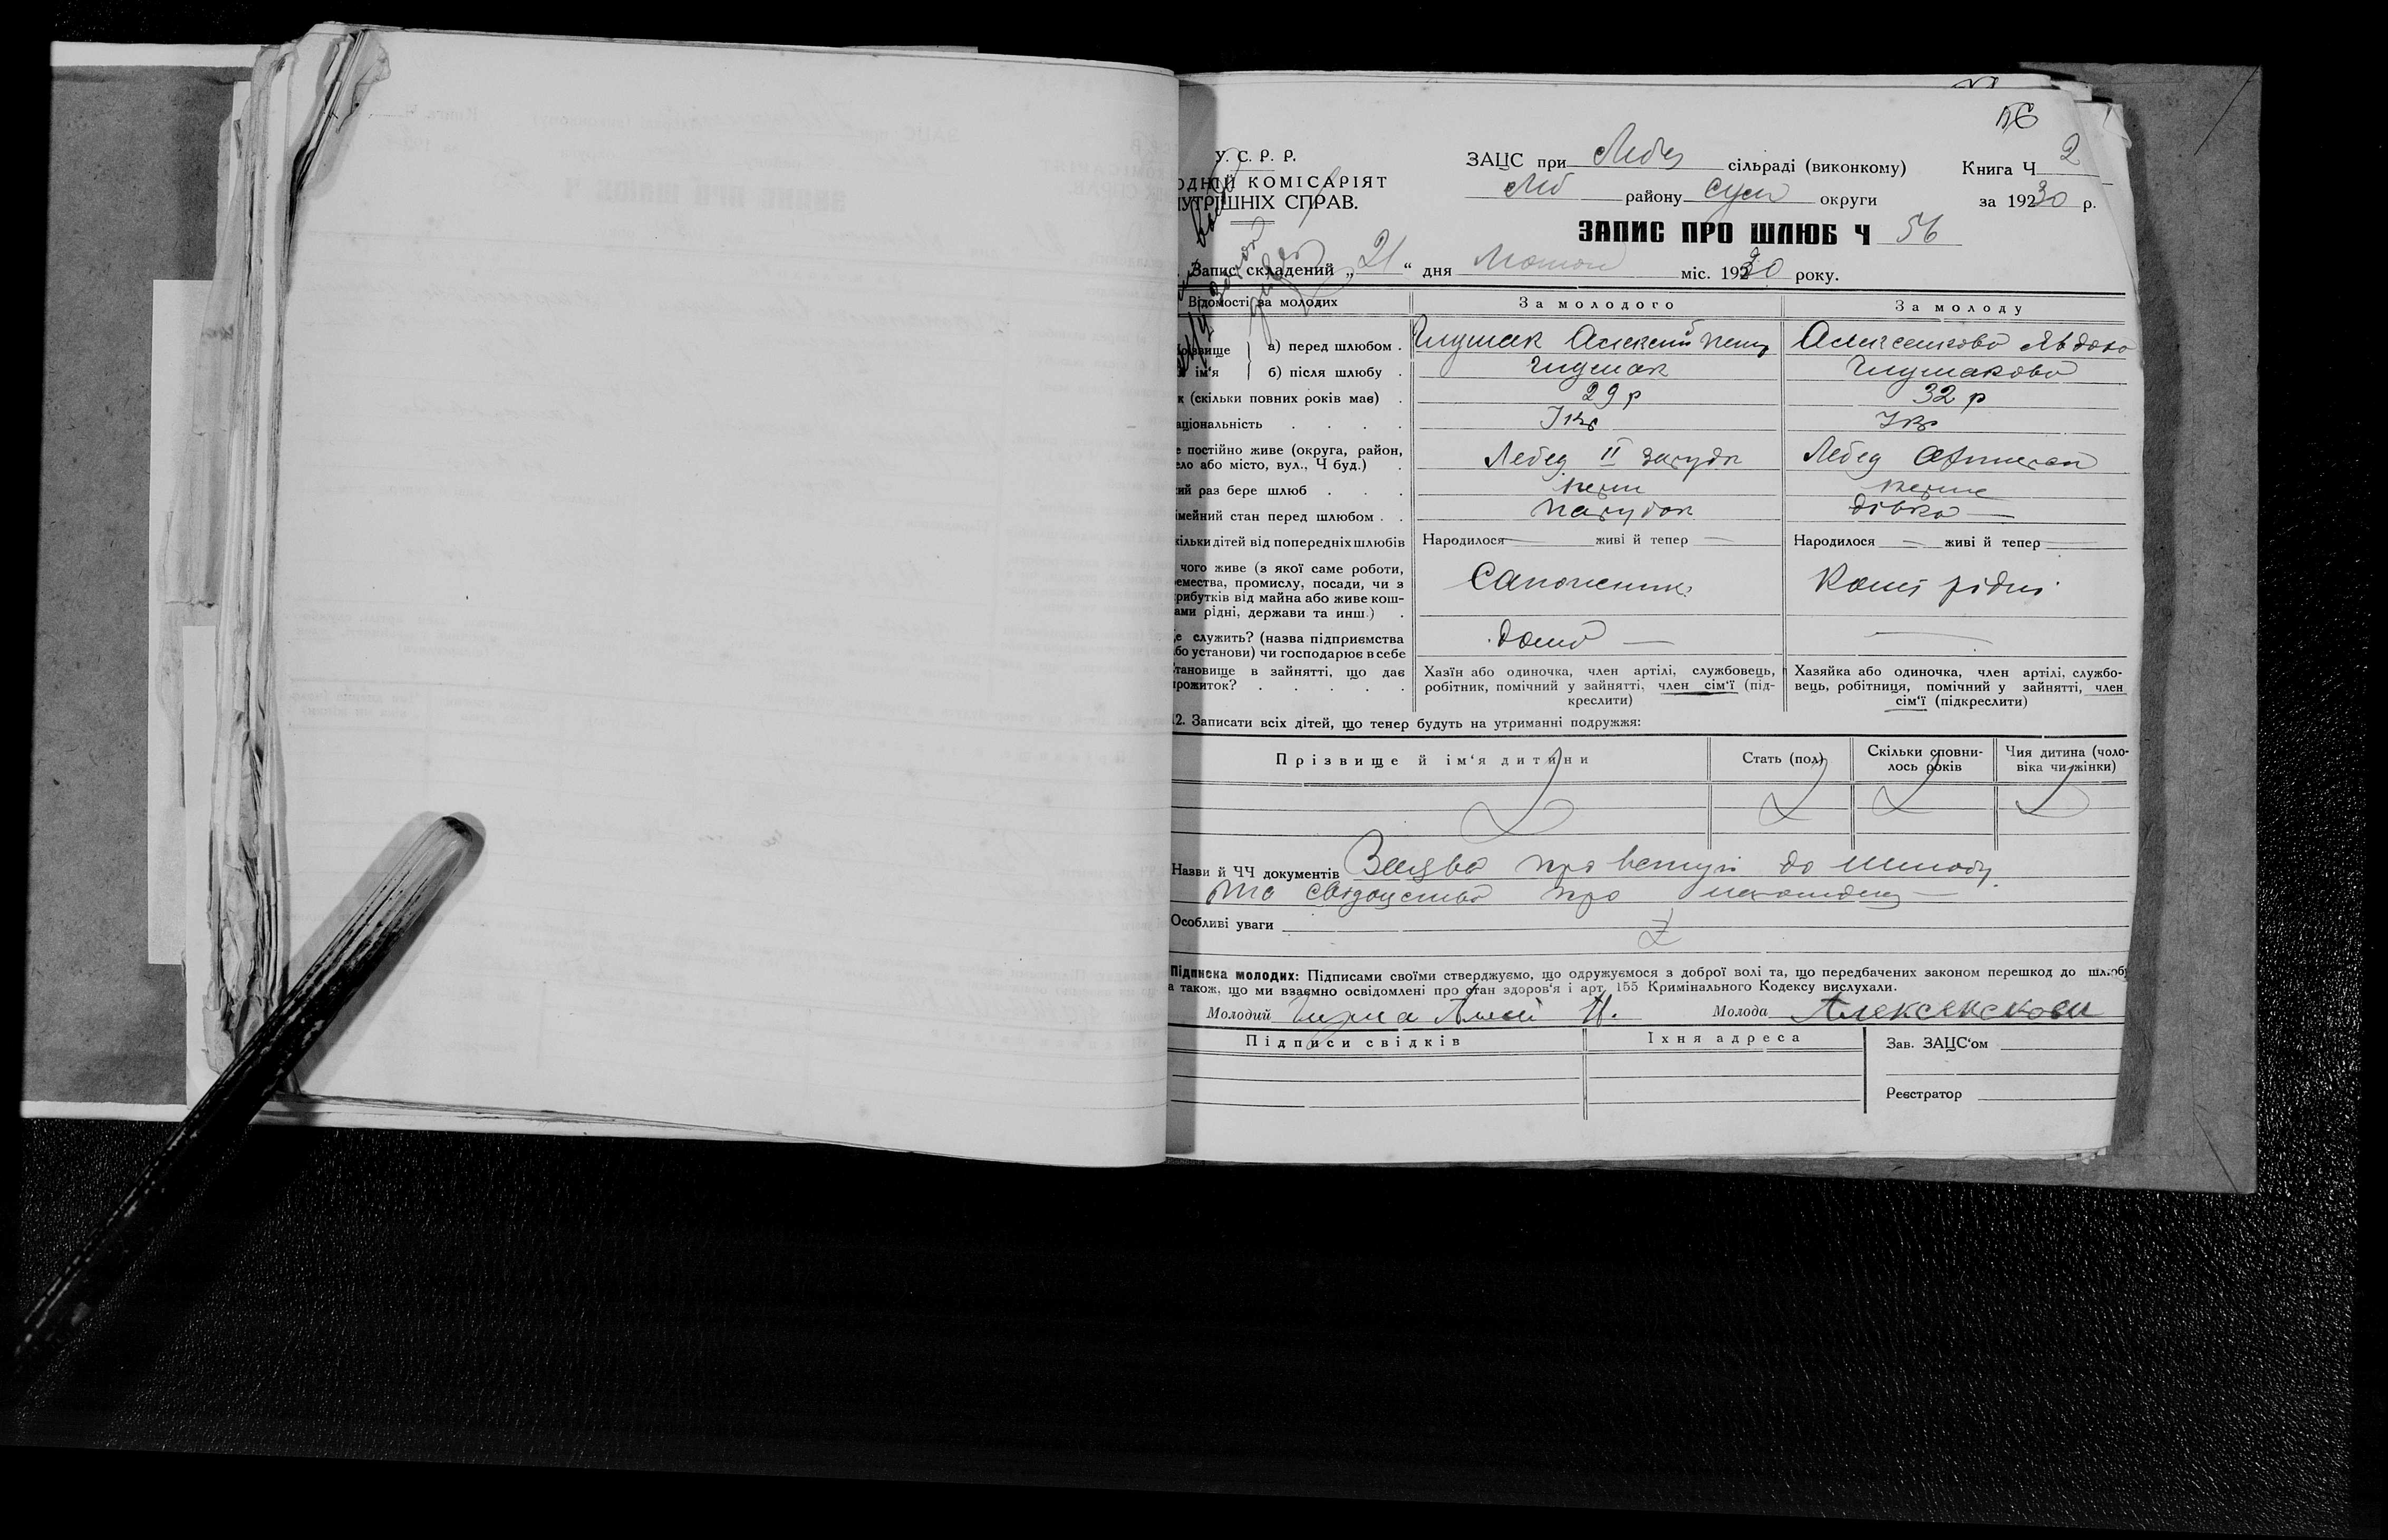 56
У. С. Р. Р.
ОДНІЙ КОМІСАРІЯТ
НУТРІШНІХ СПРАВ.
ЗАЦС при Лебед сільраді (виконкому) Книга Ч 2
Леб району Сум округи за 1930 р.
ЗАПИС ПРО ШЛЮБ Ч 56
Запис складений „ 21 “ дня Лютого міс. 1930 року.
Відомості за молодих За молодого За молоду
Прізвище а) перед шлюбом . Глушак Алексій Алексенкова Явдоко
й ім'я б) після шлюбу . Глушак Глушакова
к (скільки повних років має) . 29 р 32 р
аціональність . . . . Укр Укр
е постійно живе (округа, район, Лебед II Лебед
ело або місто, вул., Ч буд.) .
ий раз бере шлюб . . . перш перше
імейний стан перед шлюбом . . парубок дівка
кільки дітей від попередніх шлюбів Народилося — живі й тепер — Народилося — живі й тепер —
чого живе (з якої саме роботи,
емества, промислу, посади, чи з Сапожник Кошт рідні
рибутків від майна або живе кош-
ами рідні, держави та инш.) .
е служить? (назва підприємства дома — —
бо установи) чи господарює в себе
тановище в зайнятті, що дає Хазїн або одиночка, член артілі, службовець, Хазяйка або одиночка, член артілі, службо-
прожиток? . . . . . робітник, помічний у зайнятті, член сім'ї (під- вець, робітниця, помічний у зайнятті, член
креслити) сім'ї (підкреслити)
12. Записати всіх дітей, що тепер будуть на утриманні подружжя:
Прізвище й ім'я дитини Стать (пол) Скільки сповни- Чия дитина (чоло-
лось років віка чи жінки)
Назви й ЧЧ документів Заява про вступ до шлюбу
та свідоцтва про
Особливі уваги
Підписка молодих: Підписами своїми стверджуємо, що одружуємося з доброї волі та, що передбачених законом перешкод до шлюбу
а також, що ми взаємно освідомлені про стан здоров'я і арт. 155 Кримінального Кодексу вислухали.
Молодий Молода Алексенкова
Підписи свідків Їхня адреса Зав. ЗАЦС'ом
Реєстратор